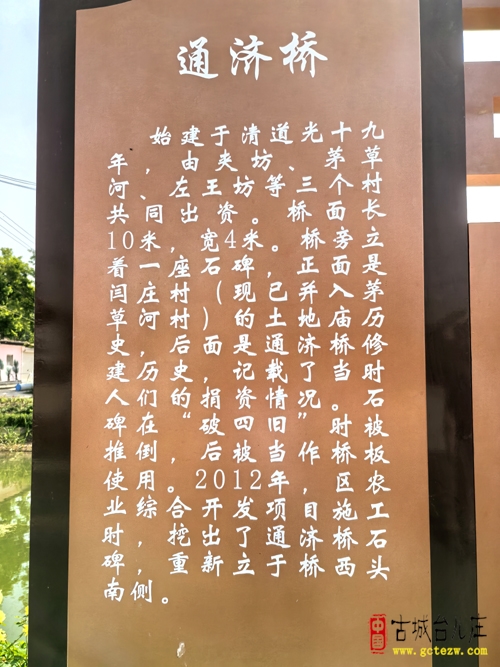 通济桥
始建于清道光十九
年，由夹坊、茅草
河、左王坊等三个村
共同出资。桥面长
10米，宽4米。桥旁立
着一座石碑，正面是
闫庄村（现已并入茅
草河村）的土地庙历
史，后面是通济桥修
建历史，记载了当时
人们的捐资情况。石
碑在“破四旧”时被
推倒，后被当作桥板
使用。2012年，区农
业综合开发项目施工
时，挖出了通济桥石
碑，重新立于桥西头
南侧。
中国 古城台儿庄
www.gctezw.com